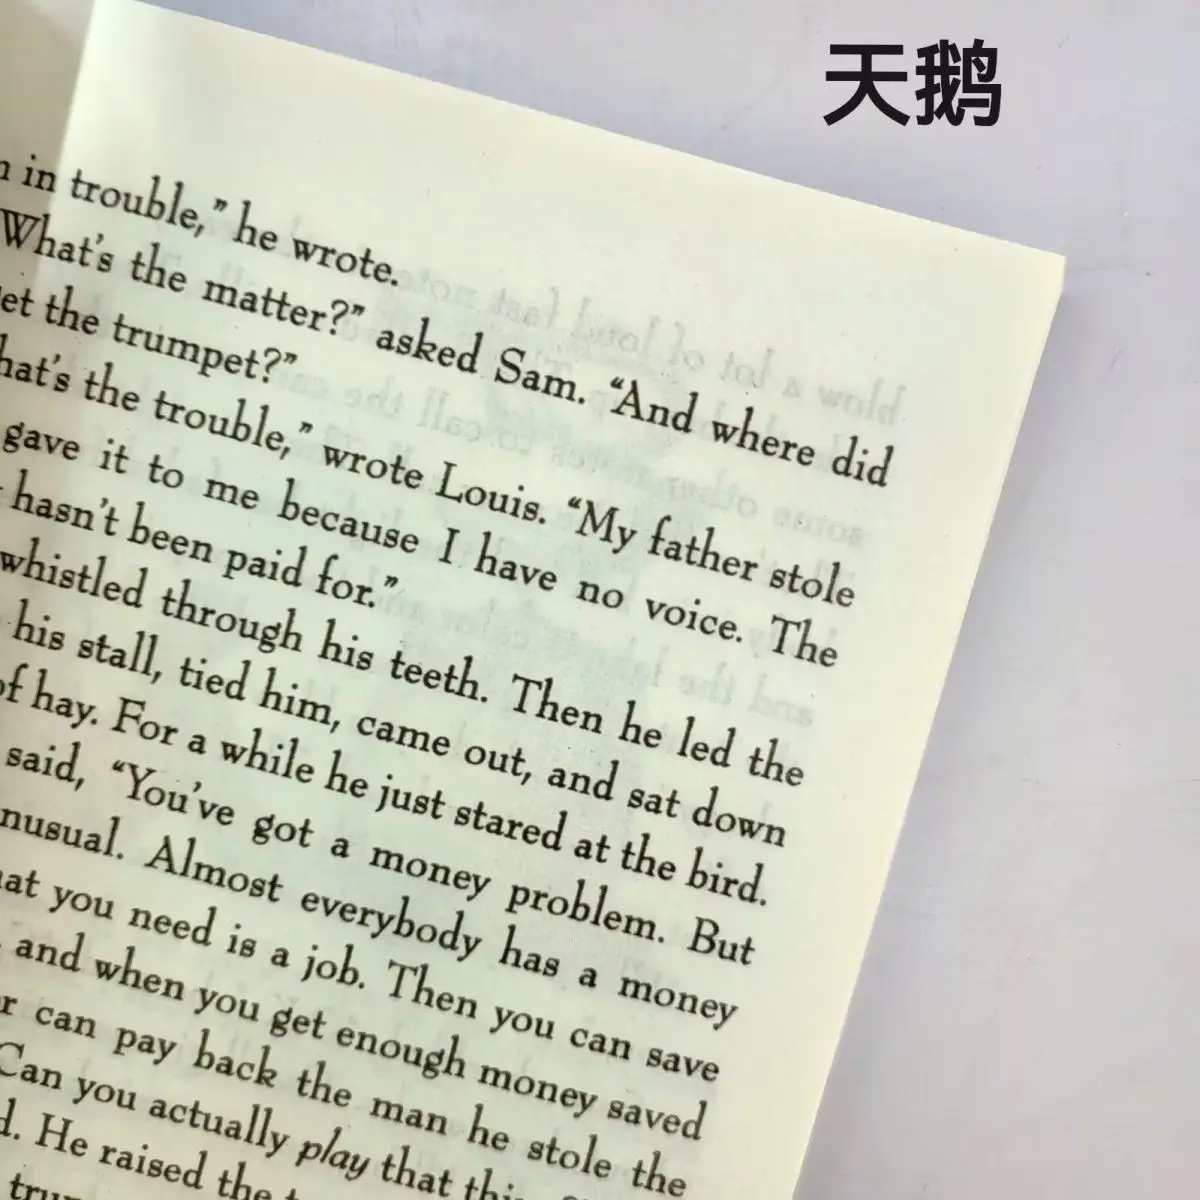 天鹅
in trouble,” he wrote.
What’s the matter?” asked Sam. “And where did
et the trumpet?”
hat’s the trouble,” wrote Louis. “My father stole
gave it to me because I have no voice. The
hasn’t been paid for.”
whistled through his teeth. Then he led the
his stall, tied him, came out, and sat down
of hay. For a while he just stared at the bird.
said, “You’ve got a money problem. But
nusual. Almost everybody has a money
hat you need is a job. Then you can save
and when you get enough money saved
r can pay back the man he stole the
Can you actually play that
d. He raised the